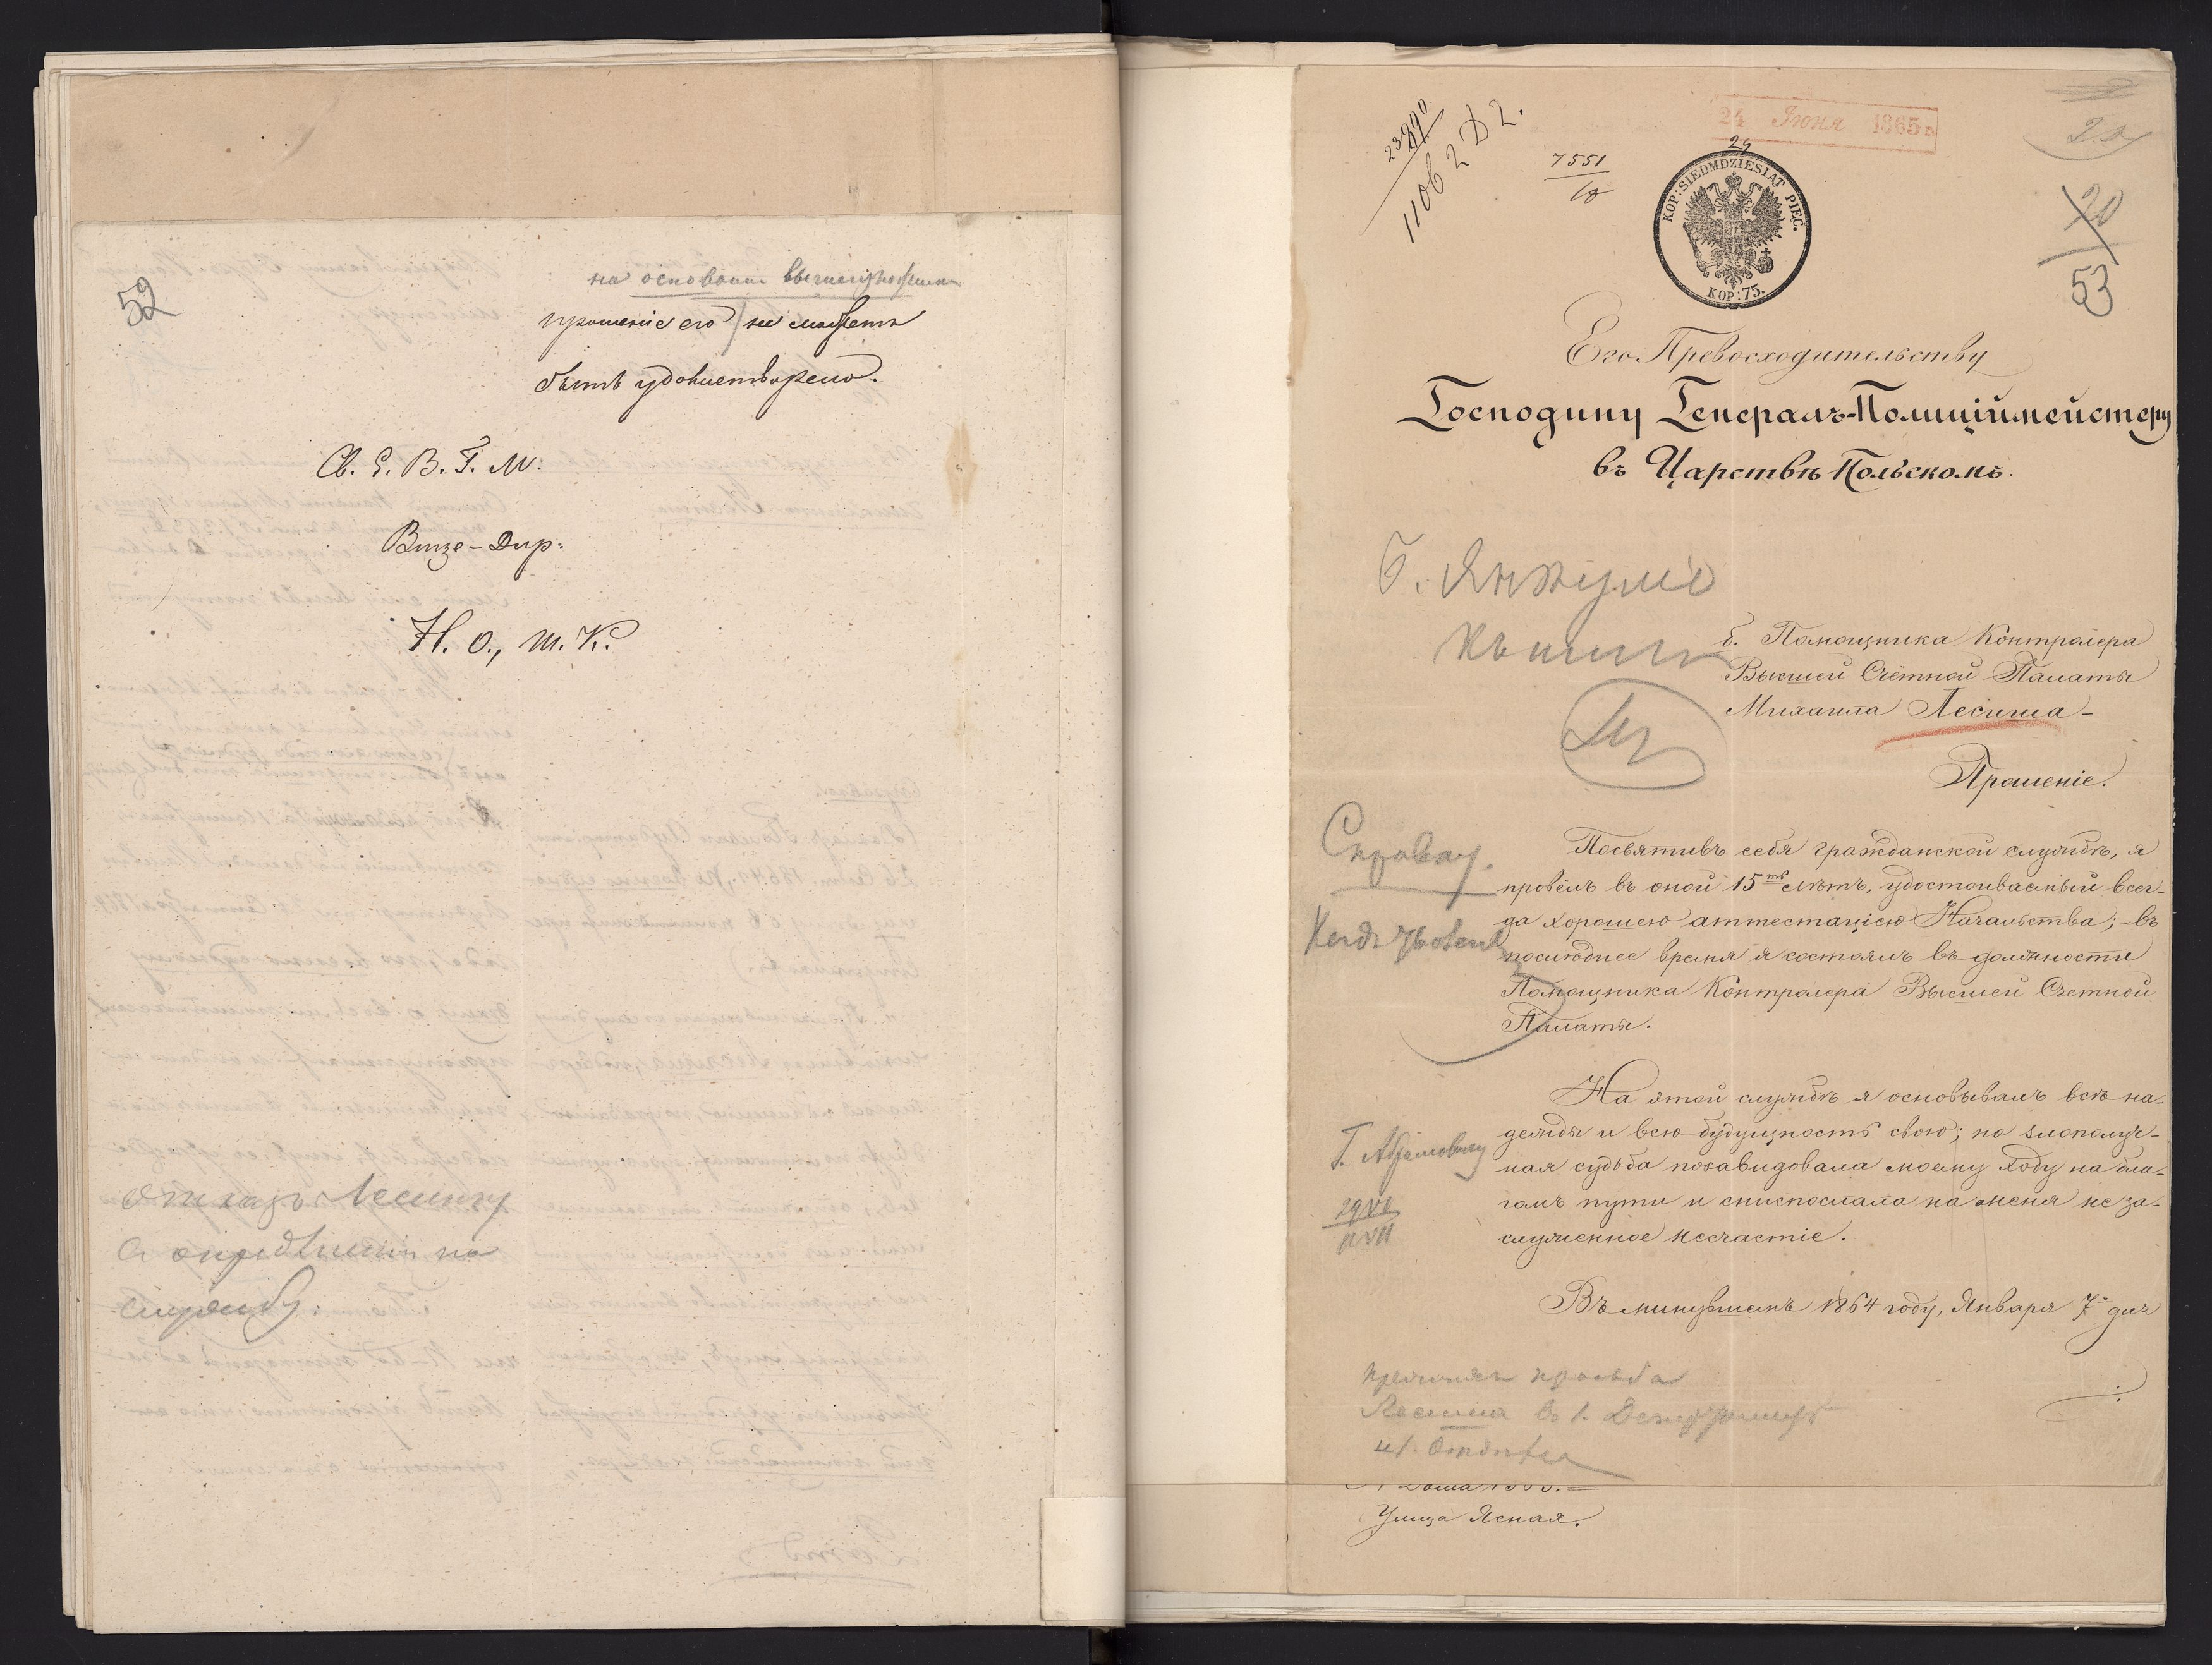 52
на основаніи вышеизложеннаго
прошеніе его не можетъ
быть удовлетворено.
Св. Е. В. Г. М.
Вице-Дир:
Н. О., т. К.
Отказъ Лесишу
о опредѣленіи на
службу.
24 Іюня 1865 г.
29
7551
1106 2 Д 2.
20
53
KOP: SIEDMDZIESIĄT PIĘĆ.
KOP: 75.
Его Превосходительству
Господину Генералъ-Полиціймейстеру
въ Царствѣ Польскомъ.
б. Помощника Контролера
Высшей Счётной Палаты
Михаила Лесиша-
Прошеніе.
Справку.
Посвятивъ себя гражданской службѣ, я
провёлъ въ оной 15ть лѣтъ, удостоиваемый всег-
да хорошею аттестаціею Начальства; - въ
Когда уволенъ
послѣднее время я состоялъ въ должности
Помощника Контролера Высшей Счетной
Палаты.
На этой службѣ я основывалъ всѣ на-
дежды и всю будущность свою; но злополуч-
ная судьба позавидовала моему ходу на бла-
гомъ пути и ниспослала на меня неза-
служенное несчастіе.
Г.
29 VI
Въ минувшемъ 1864 году, Января 7 дня
просьба
Лесиша въ 1.
Улица Ясная.